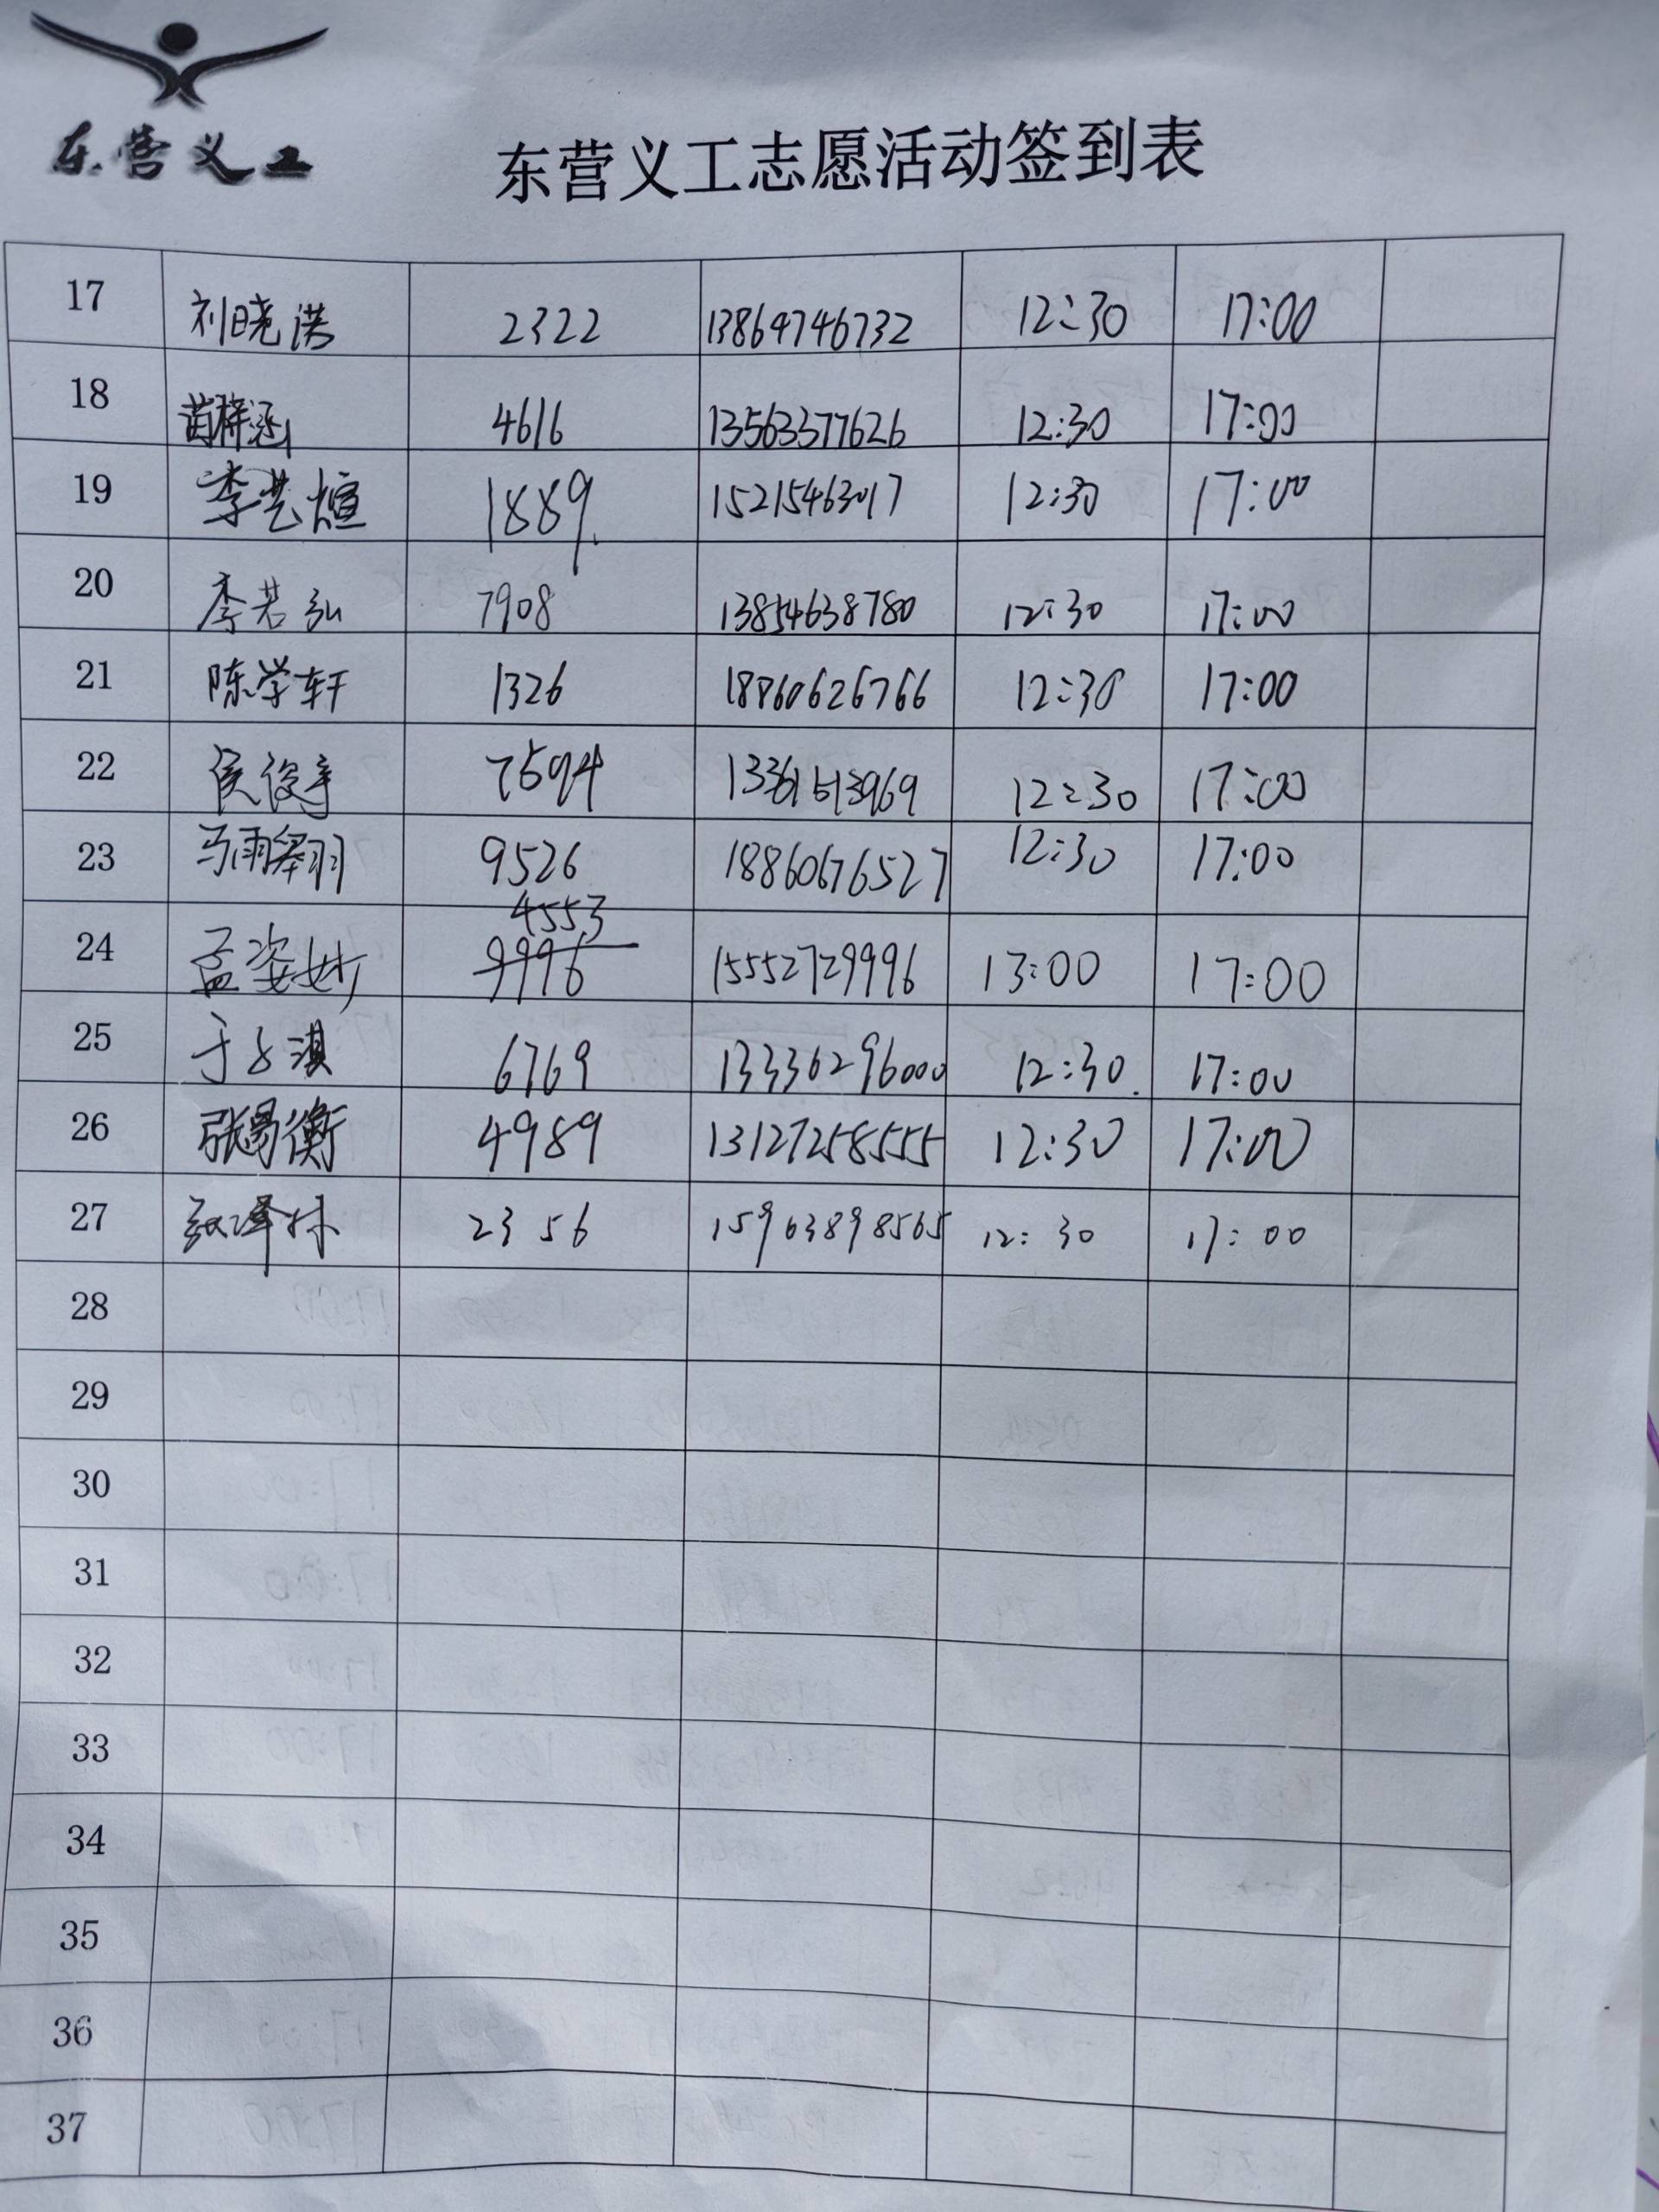 东营义工
东营义工志愿活动签到表
17 刘晓洪 2322 13864746732 12:30 17:00
18 苗梓涵 4616 13563377626 12:30 17:00
19 李艺煊 1889 15215463017 12:30 17:00
20 李若弘 7908 13854638780 12:30 17:00
21 陈学轩 1326 18860626766 12:30 17:00
22 侯俊宇 7594 12:30 17:00
23 马雨翠羽 9526 18860676527 12:30 17:00
4553
24 孟姿妙 9996 15552729996 13:00 17:00
25 于子淇 6769 13336296000 12:30 17:00
26 张易衡 4989 13127258555 12:30 17:00
27 张泽林 2356 15963898565 12:30 17:00
28
29
30
31
32
33
34
35
36
37